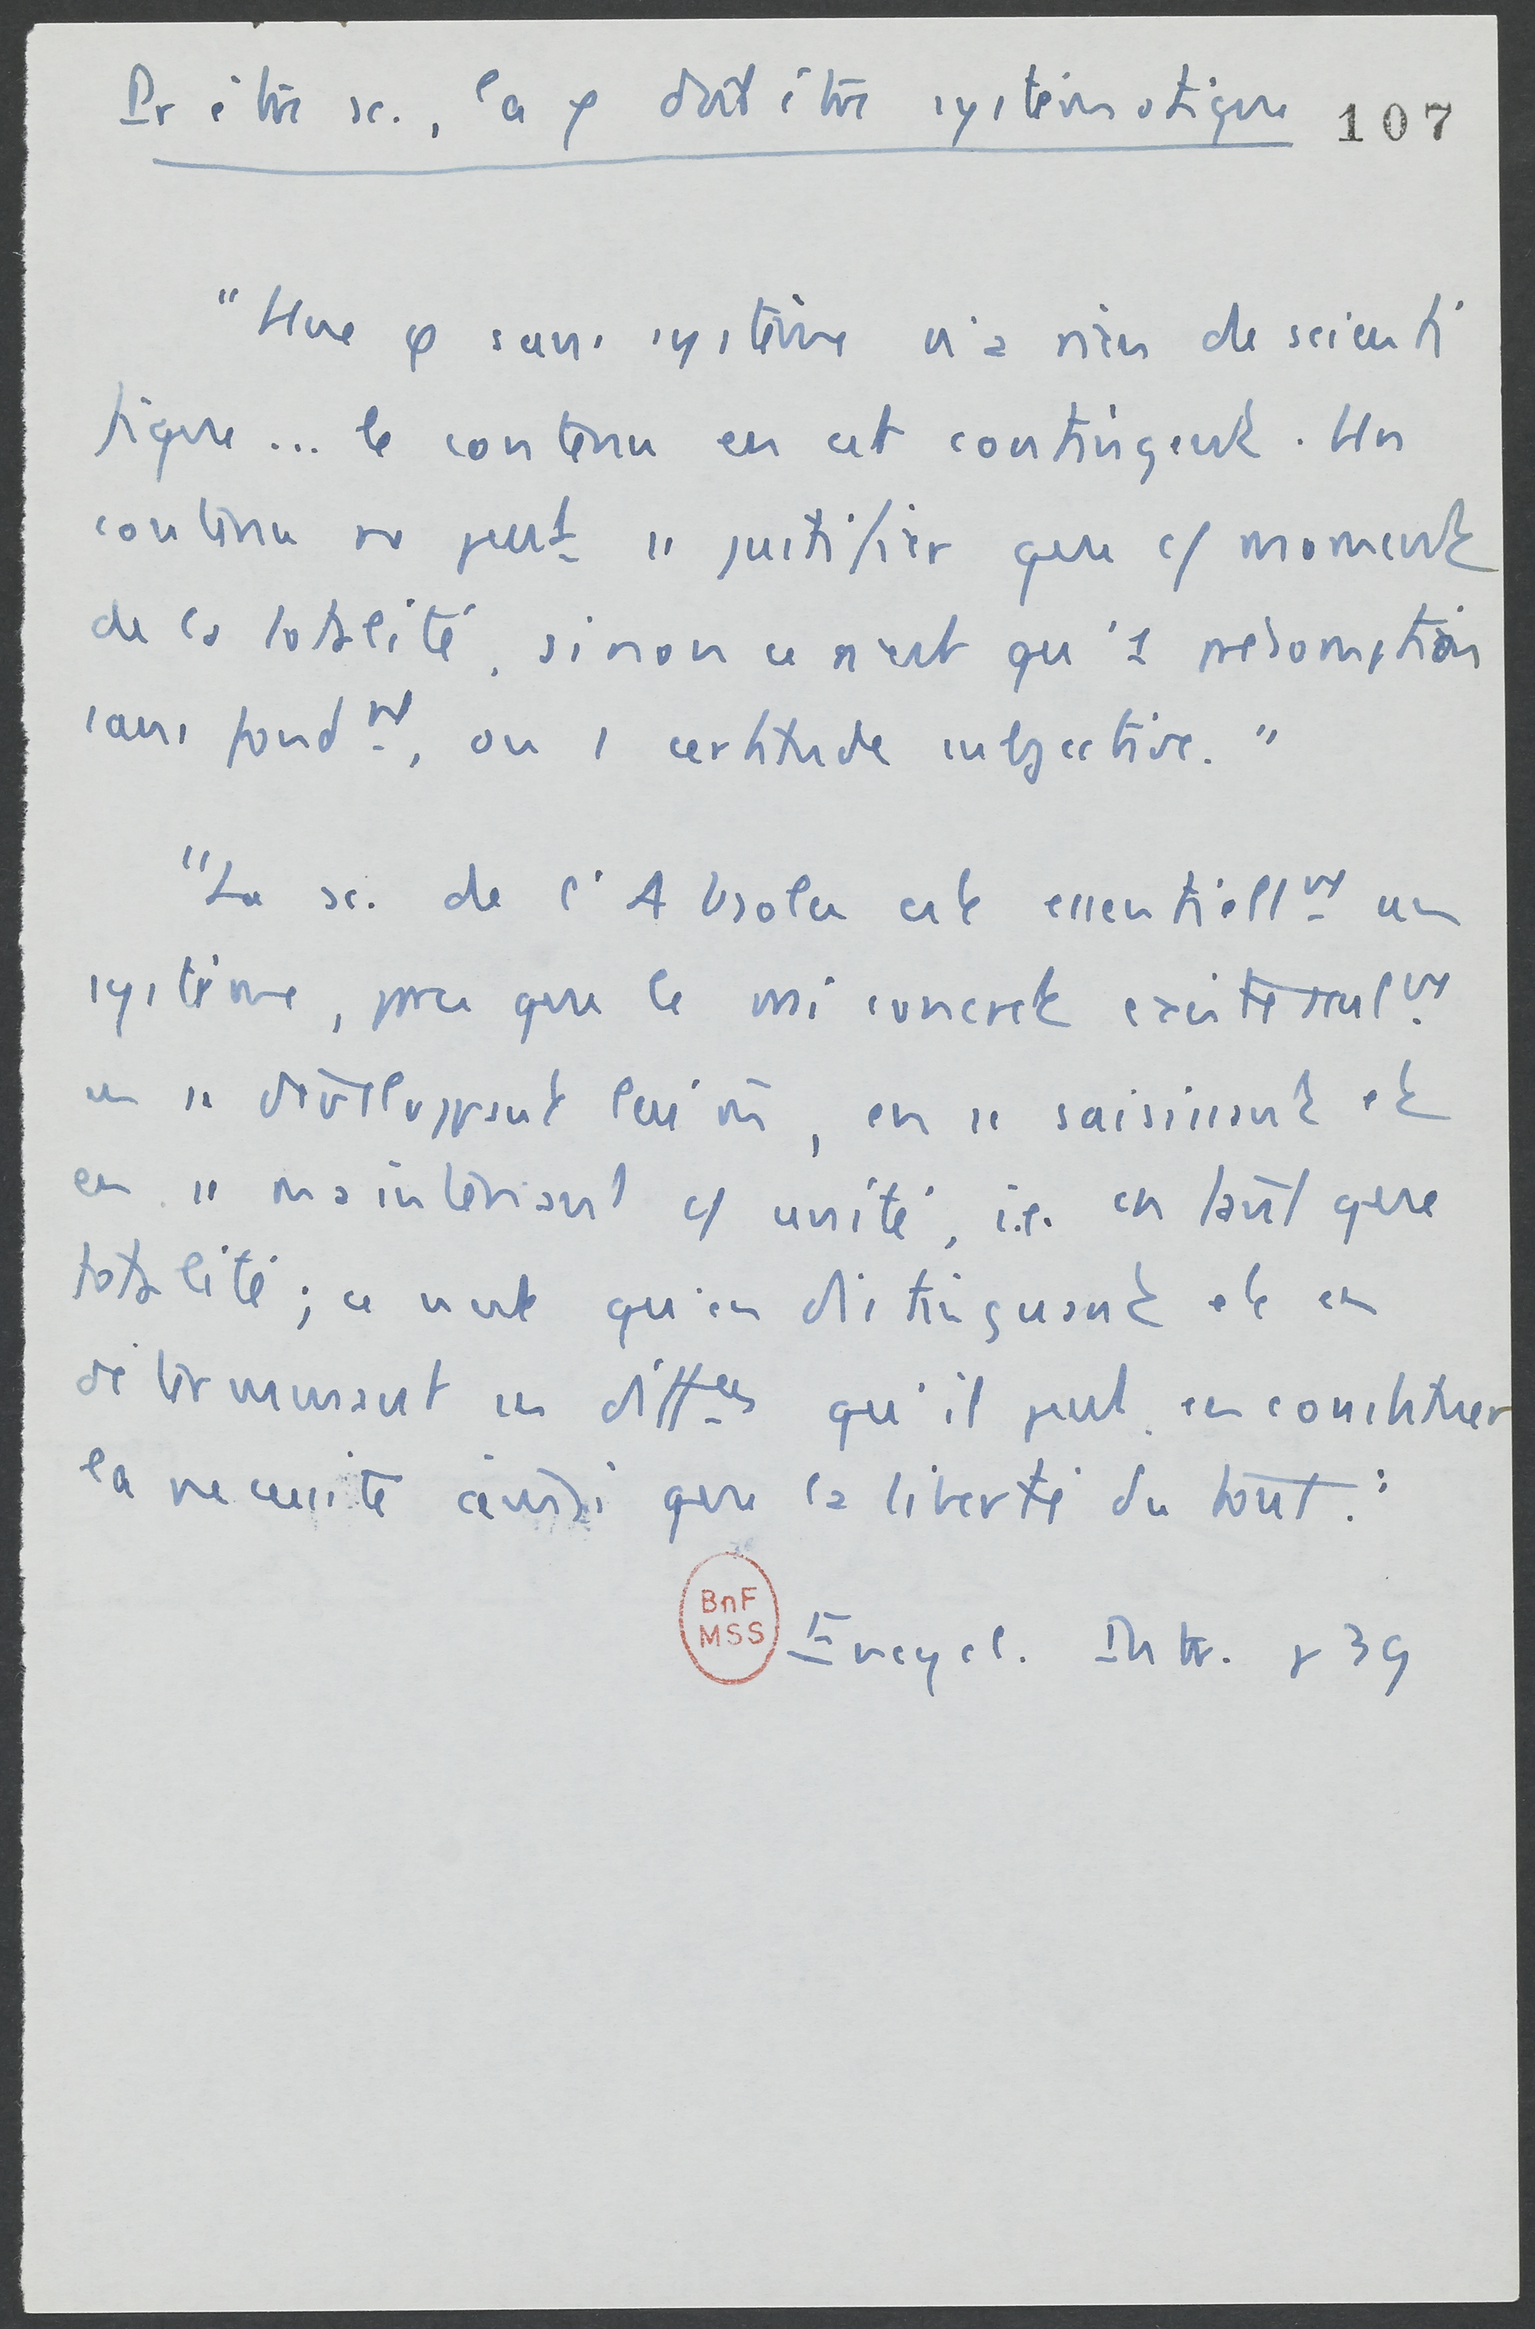 Pr être sc., la φ doit être systématique 107
"Une φ sans système n'a rien de scienti
fique... le contenu en est contingent. Un
contenu ne peut se justifier que c/ moment
de la totalité, sinon ce n'est qu'1 présomption
sans fondmt, ou 1 certitude subjective."
"La sc. de l'Absolu est essentiellmt un
système, pce que le vrai concret existe seulmt
en se développant lui m̄, en se saisissant et
en se maintenant c/ unité, i.e. en tant que
totalité; ce n'est qu'en distinguant et en
déterminant ses diffces qu'il peut en constituer
la nécessité ainsi que la liberté du tout."
BnF
MSS
Encycl. Intr. p 39